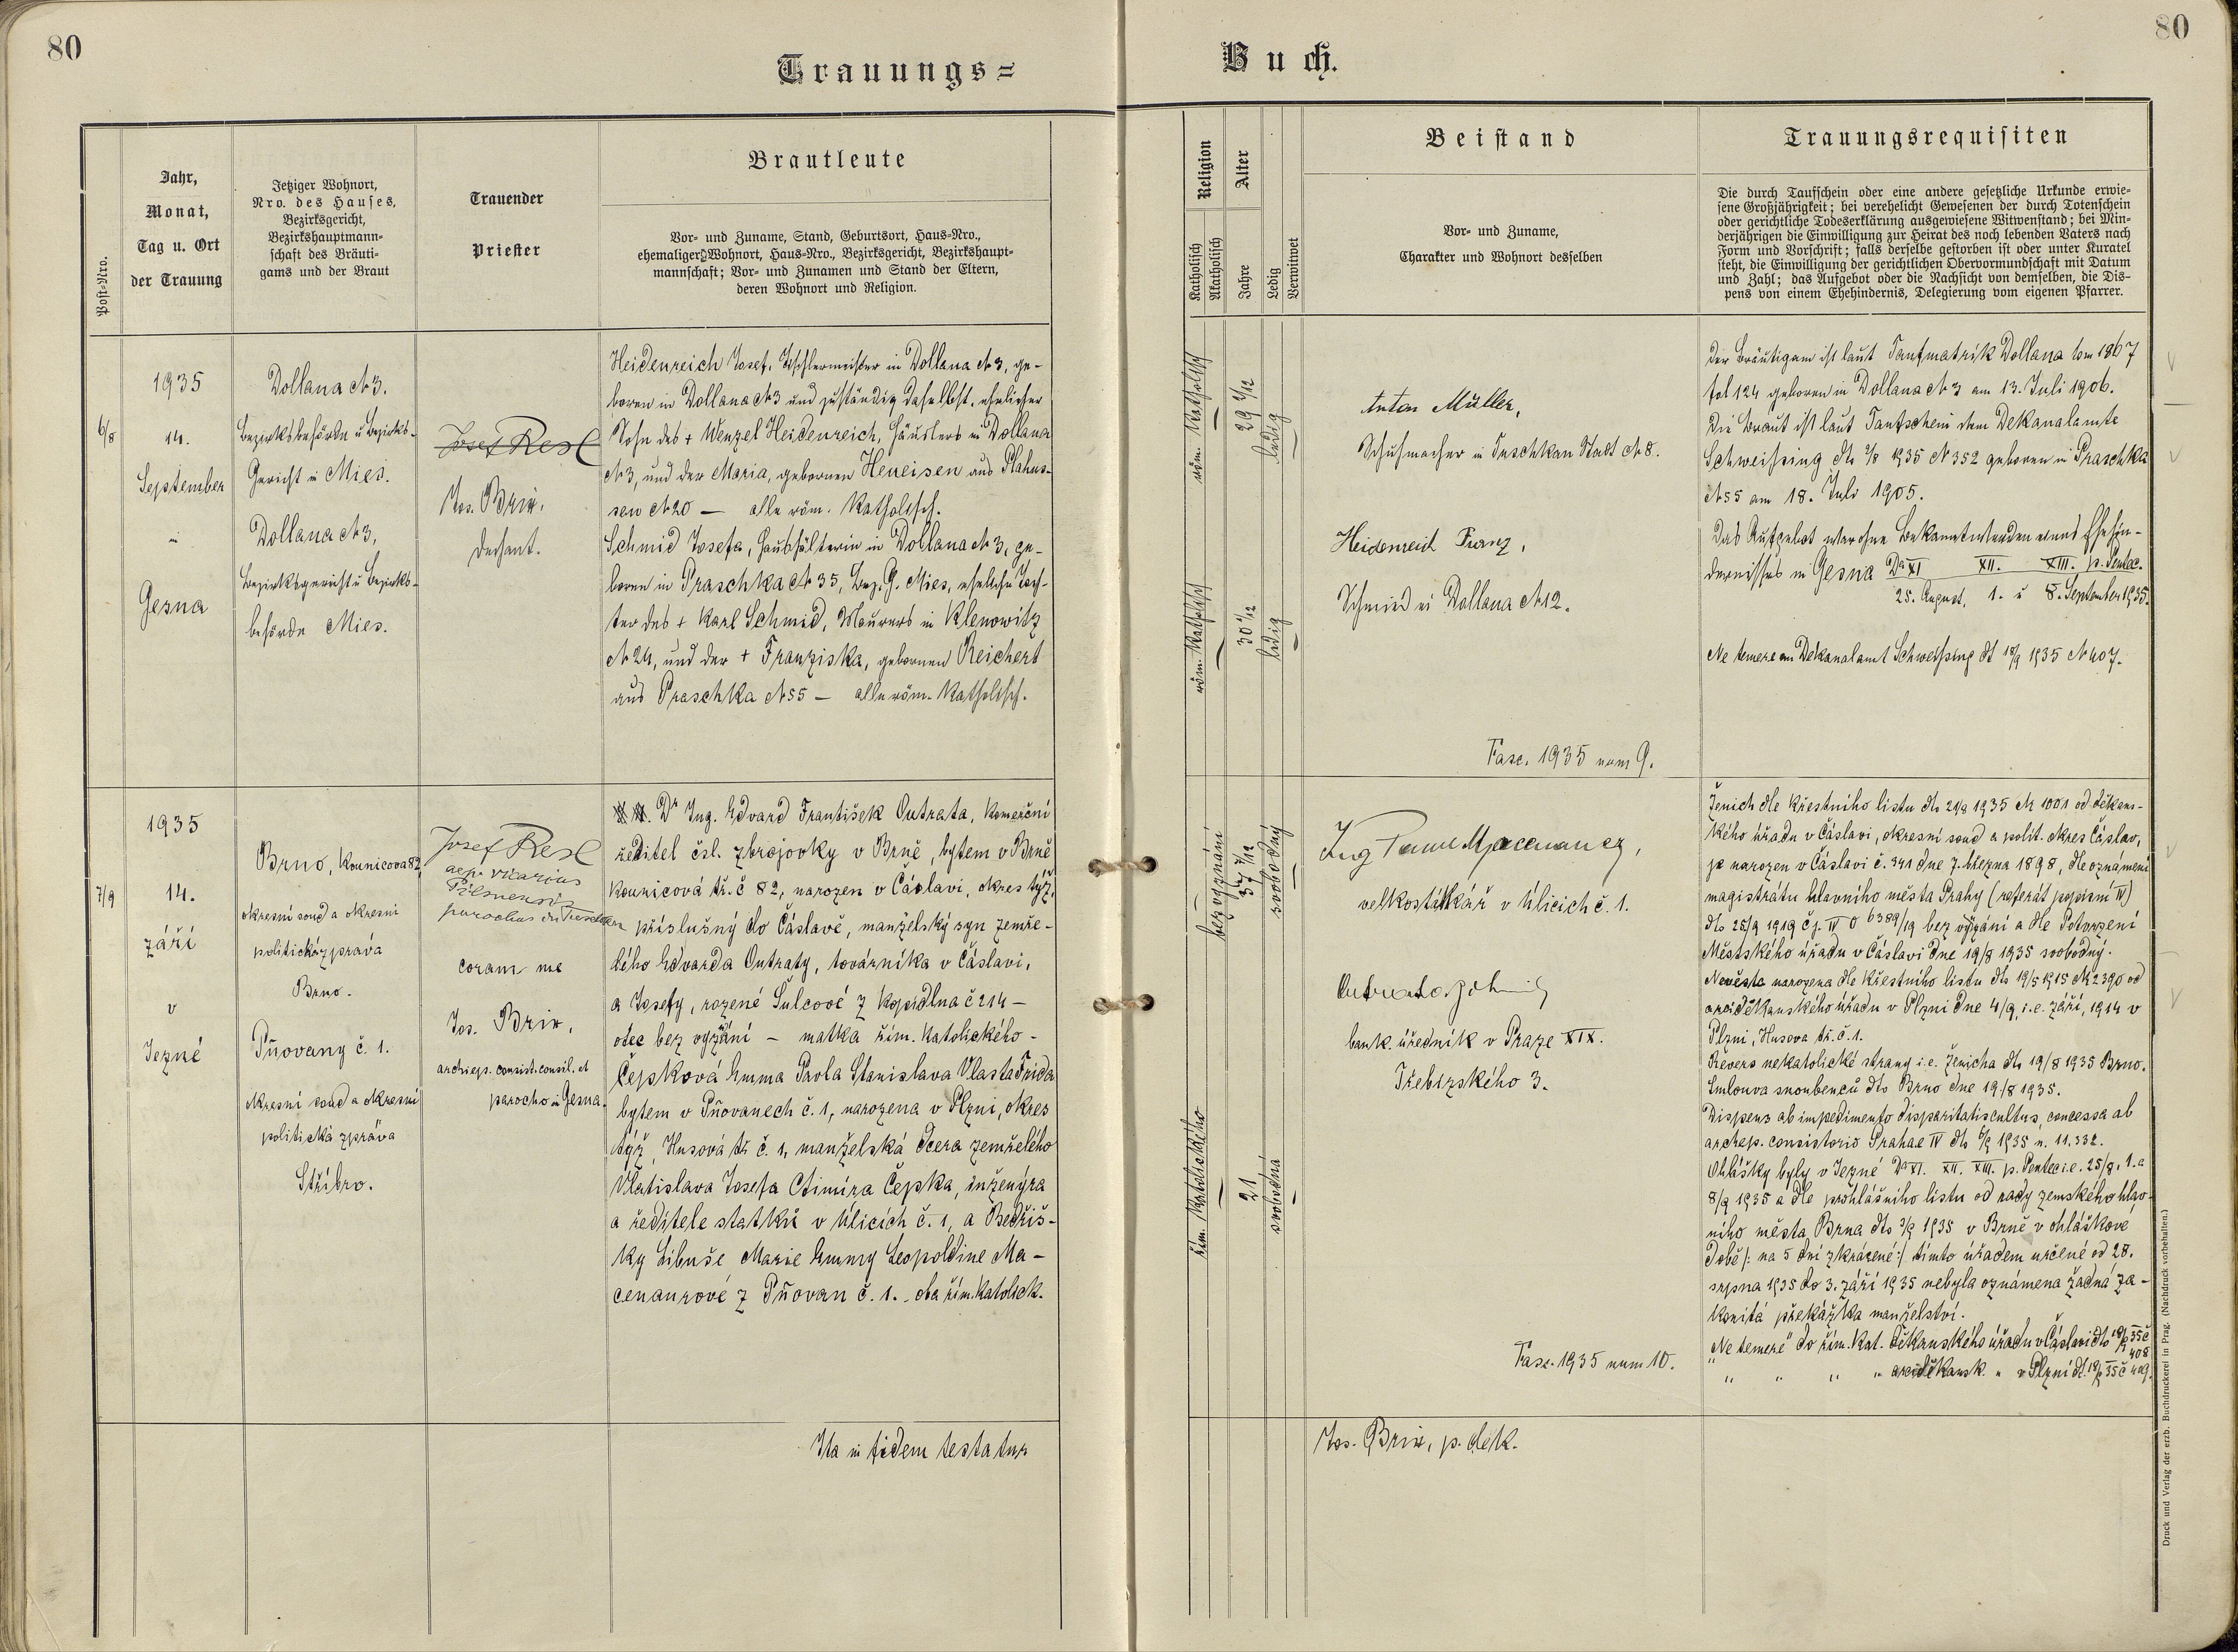 80
Trauungs=
Post-Nro.
Jahr,
Monat,
Tag u. Ort
der Trauung
Jetziger Wohnort,
Nro. des Hauses,
Bezirksgericht,
Bezirkshauptmann-
schaft des Bräuti-
gams und der Braut
Trauender
Priester
Brautleute
Vor- und Zuname, Stand, Geburtsort, Haus-Nro.,
ehemaliger Wohnort, Haus-Nro., Bezirksgericht, Bezirkshaupt-
mannschaft; Vor- und Zunamen und Stand der Eltern,
deren Wohnort und Religion.
6/8
1935
14.
September
in
Gesna
Dollana N 3.
Bezirksbehörde u Bezirks-
Gericht in Mies.
Dollana N 3,
Bezirksgericht u Bezirks-
behörde Mies.
Josef Resl
Jos. Brix.
Dechant.
Heidenreich Josef, Tischlermeister in Dollana N 3, ge-
boren in Dollana N 3 und zuständig daselbst, ehelicher
Sohn des + Wenzel Heidenreich, Häuslers in Dollana
N 3, und der Maria, gebornen Heneisen aus Plahus-
sen N 20 — alle röm. Katholisch.
Schmid Josefa, Haushälterin in Dollana N 3, ge-
boren in Praschka N 35, Bez. G. Mies, eheliche Toch-
ter des + Karl Schmid, Maurers in Klenowitz
N 24, und der + Franziska, gebornen Reichert
aus Praschka N 55 — alle röm. Katholisch.
7/9
1935
14.
září
v
Jezné
Brno, Kounicova 82,
okresní soud a okresní
politická zpráva
Brno.
Pňovany č. 1.
okresní soud a okresní
politická zpráva
Stříbro.
Josef Resl
aep. vicarius
Pilsnensis
parochus in Tuschkau
coram me
Jos. Brix,
archiep. consist. consil. et
parocho in Gesna.
Dr Ing. Edvard František Outrata, komerční
ředitel čsl. zbrojovky v Brně, bytem v Brně
Kounicová tř. č 82, narozen v Čáslavi, okres týž,
příslušný do Čáslavě, manželský syn zemře-
lého Edvarda Outraty, továrníka v Čáslavi,
a Josefy, rozené Šulcové z Kopidlna č 214 –
otec bez vyznání – matka řím. katolického –
Čepsková Emma Paola Stanislava Vlasta Frida
bytem v Pňovanech č. 1, narozena v Plzni, okres
týž, Husová tř č. 1, manželská dcera zemřelého
Vlatislava Josefa Ctimíra Čepska, inženýra
a ředitele statků v Úlicích č. 1, a Bedřiš-
ky Libuše Marie Emmy Leopoldine Ma-
cenaurové z Pňovan č. 1., oba řím. katolick.
Ita in fidem testatur
80
Buch.
Religion
Katholisch
Akatholisch
Alter
Jahre
Ledig
Verwitwet
Beistand
Vor- und Zuname,
Charakter und Wohnort desselben
Trauungsrequisiten
Die durch Taufschein oder eine andere gesetzliche Urkunde erwie-
sene Großjährigkeit; bei verehelicht Gewesenen der durch Totenschein
oder gerichtliche Todeserklärung ausgewiesene Witwenstand; bei Min-
derjährigen die Einwilligung zur Heirat des noch lebenden Vaters nach
Form und Vorschrift; falls derselbe gestorben ist oder unter Kuratel
steht, die Einwilligung der gerichtlichen Obervormundschaft mit Datum
und Zahl; das Aufgebot oder die Nachsicht von demselben, die Dis-
pens von einem Ehehindernis, Delegierung vom eigenen Pfarrer.
röm. Katholisch
29 2/12
ledig
röm. Katholisch
30 1/12
ledig
Anton Müller,
Schuhmacher in Tuschkau Stadt N 8.
Heidenreich Franz,
Schmied in Dollana N 12.
Fasc. 1935 num 9.
Der Bräutigam ist laut Taufmatrik Dollana tom 1867
fol 124 geboren in Dollana N 3 am 13. Juli 1906.
Die Braut ist laut Taufschein dem Dekanalamte
Schweissing dto 2/8 1935 N 352 geboren in Praschka
N 55 am 18. Juli 1905.
Das Aufgebot war ohne Bekanntwerden eines Ehehin-
dernisses in Gesna Da XI XII. XIII. p. Pentec.
25. August, 1. u 8. September 1935.
Ne temere an Dekanalamt Schweissing dt 18/9 1935 N 407.
bez vyznání
37 7/12
svobodný
řím. katolického
21
svobodná
velkostatkář v Úlicích č. 1.
bank. úředník v Praze XIX.
Třebízského 3.
Fasc. 1935 num 10.
Ženich dle křestního listu dto 21/8 1935 N 1001 od děkans-
kého úřadu v Čáslavi, okresní soud a polit. okres Čáslav,
je narozen v Čáslavi č. 341 dne 7. března 1898, dle oznámení
magistrátu hlavního města Prahy (referát popisní IV)
dto 25/9 1919 čj. IV O 6389/19 bez vyznání a dle Potvrzení
Městského úřadu v Čáslavi dne 19/8 1935 svobodný.
Nevěsta narozena dle křestního listu dto 19/5 1915 N 2390 od
arciděkanského úřadu v Plzni dne 4/9, i.e. září, 1914 v
Plzni, Husova tř. č. 1.
Revers nekatolické strany i.e. ženicha dto 19/8 1935 Brno.
Smlouva snoubenců dto Brno dne 19./8 1935.
Dispens ab impedimento disparitatis cultus, concessa ab
archiep. consistorio Prahae IV dto 5/9 1935 n. 11.332.
Ohlášky byly v Jezné Da XI. XII. XIII. p. Pentec i.e. 25/8, 1. a
8/9 1935 a dle prohlášního listu od rady zemského hlav-
ního města Brna dto 3/9 1935 v Brně v ohláškové
době /: na 5 dní zkrácené :/ tímto úřadem určené od 28.
srpna 1935 do 3. září 1935 nebyla oznámena žádná zá-
konitá překážka manželství.
„Ne temere“ do řím. kat. děkanského úřadu v Čáslavi dto 18/9 35 č 408
" " " " arciděkansk. " v Plzni dt. 18/9 35 č 409.
Jos. Brix, p. dek.
Druck und Verlag der erzb. Buchdruckerei in Prag. (Nachdruck vorbehalten.)